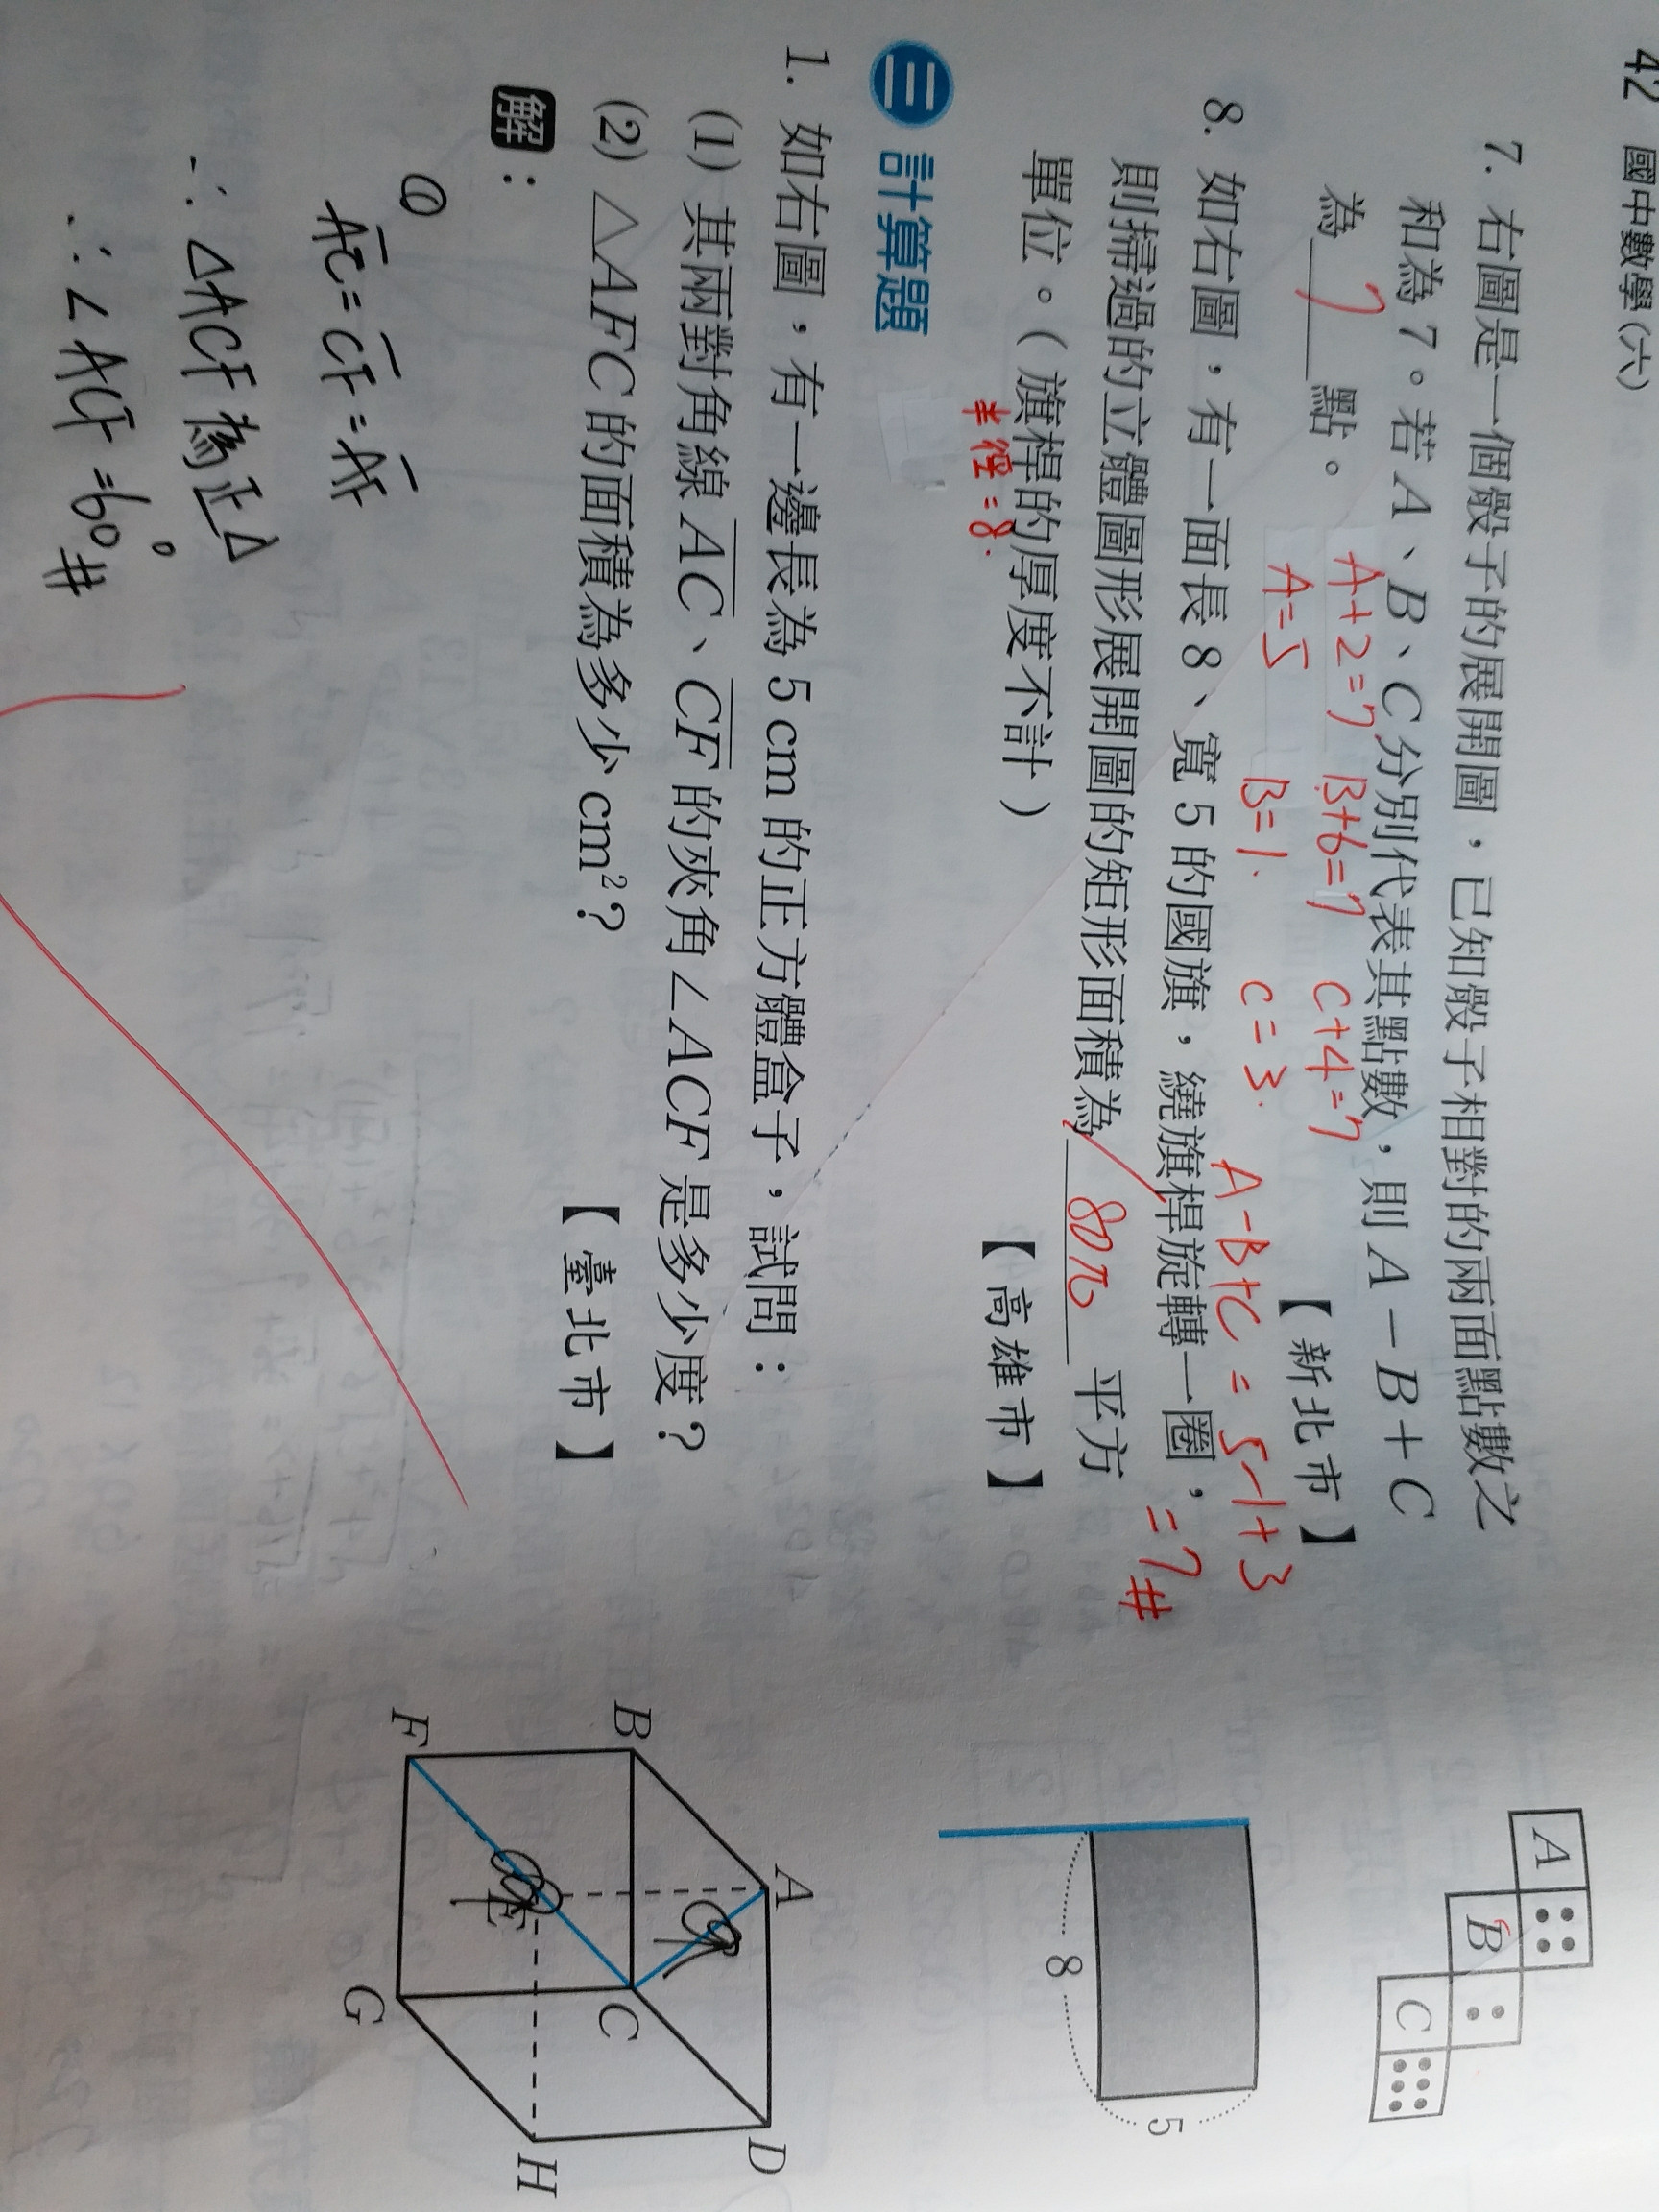 42 國中數學(六)
7. 右圖是一個骰子的展開圖，已知骰子相對的兩面點數之
和為 7。若 A、B、C 分別代表其點數，則 A－B＋C
為 7 點。
【新北市】
A+2=7 B+6=7 C+4=7
A=5 B=1. C=3.
A-B+C = 5-1+3
=7#
A
B
C
8. 如右圖，有一面長 8、寬 5 的國旗，繞旗桿旋轉一圈，
則掃過的立體圖形展開圖的矩形面積為 80π 平方
單位。(旗桿的厚度不計)
【高雄市】
半徑=8.
8
5
三 計算題
1. 如右圖，有一邊長為 5 cm 的正方體盒子，試問：
(1) 其兩對角線 AC、CF 的夾角∠ACF 是多少度？
(2) △AFC 的面積為多少 cm²？
【臺北市】
解：
AC=CF=AF
∴ △ACF 為正△
∴ ∠ACF=60°#
A
B
C
D
E
F
G
H